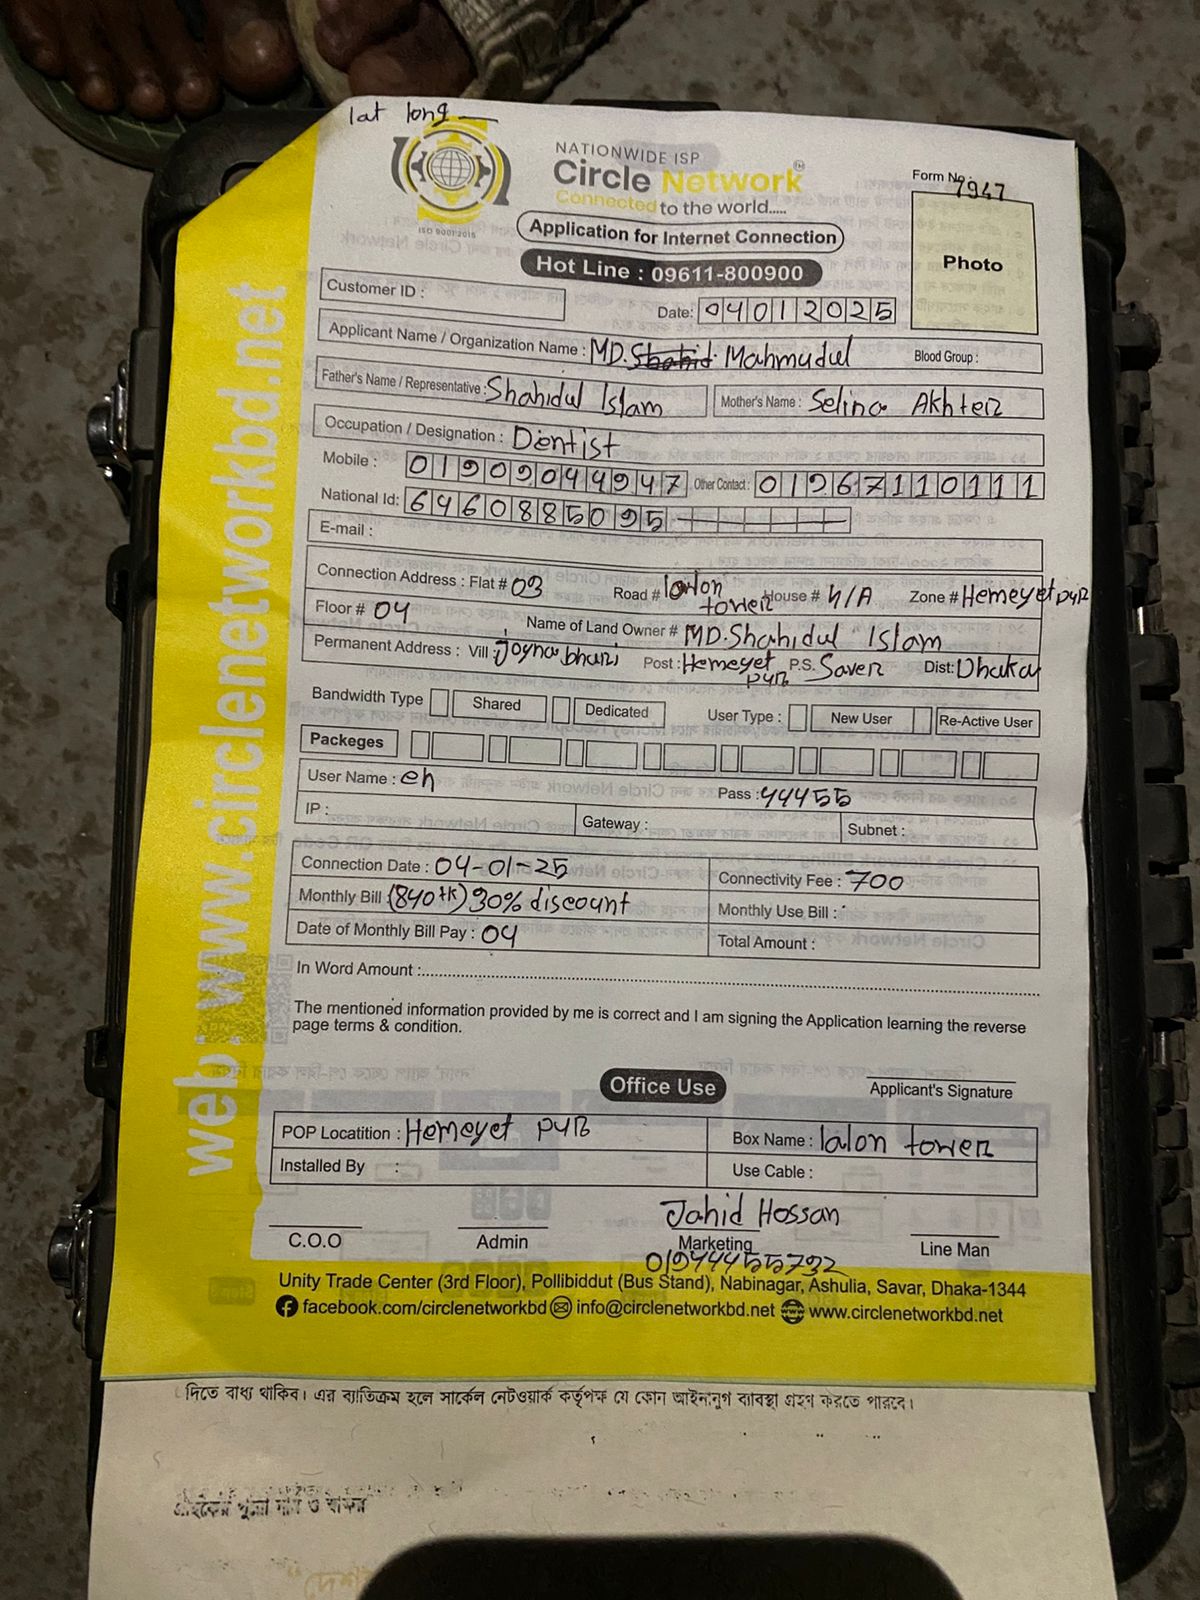 lat long
NATIONWIDE ISP
Circle Network
Connected to the world.....
ISO 9001:2015
Form No: 7947
Application for Internet Connection
Photo
Hot Line : 09611-800900
Customer ID :
Date: 04012025
Applicant Name / Organization Name : MD. Shahid Mahmudul Blood Group :
Father's Name / Representative : Shahidul Islam Mother's Name : Selina Akhter
Occupation / Designation : Dentist
Mobile : 01909044947 Other Contact : 01967110111
National Id: 6460885095
E-mail :
Connection Address : Flat # 03 Road # lalon tower House # N/A Zone # Hemeyet pur
Floor # 04 Name of Land Owner # MD. Shahidul Islam
Permanent Address : Vill : Joynabbari Post : Hemeyet pur P.S. Saver Dist: Dhaka
Bandwidth Type Shared Dedicated User Type : New User Re-Active User
Packeges
User Name : en Pass : 44455
IP : Gateway : Subnet :
Connection Date : 04-01-25 Connectivity Fee : 700
Monthly Bill (840 tk) 30% discount Monthly Use Bill :
Date of Monthly Bill Pay : 04 Total Amount :
In Word Amount :
The mentioned information provided by me is correct and I am signing the Application learning the reverse
page terms & condition.
Applicant's Signature
Office Use
POP Locatition : Hemeyet pur Box Name : lalon tower
Installed By : Use Cable :
Jahid Hossan
C.O.O Admin Marketing Line Man
01944455732
Unity Trade Center (3rd Floor), Pollibiddut (Bus Stand), Nabinagar, Ashulia, Savar, Dhaka-1344
facebook.com/circlenetworkbd info@circlenetworkbd.net www.circlenetworkbd.net
web: www.circlenetworkbd.net
দিতে বাধ্য থাকিব। এর ব্যতিক্রম হলে সার্কেল নেটওয়ার্ক কর্তৃপক্ষ যে কোন আইনানুগ ব্যাবস্থা গ্রহণ করতে পারবে।
গ্রাহকের পুরো নাম ও স্বাক্ষর